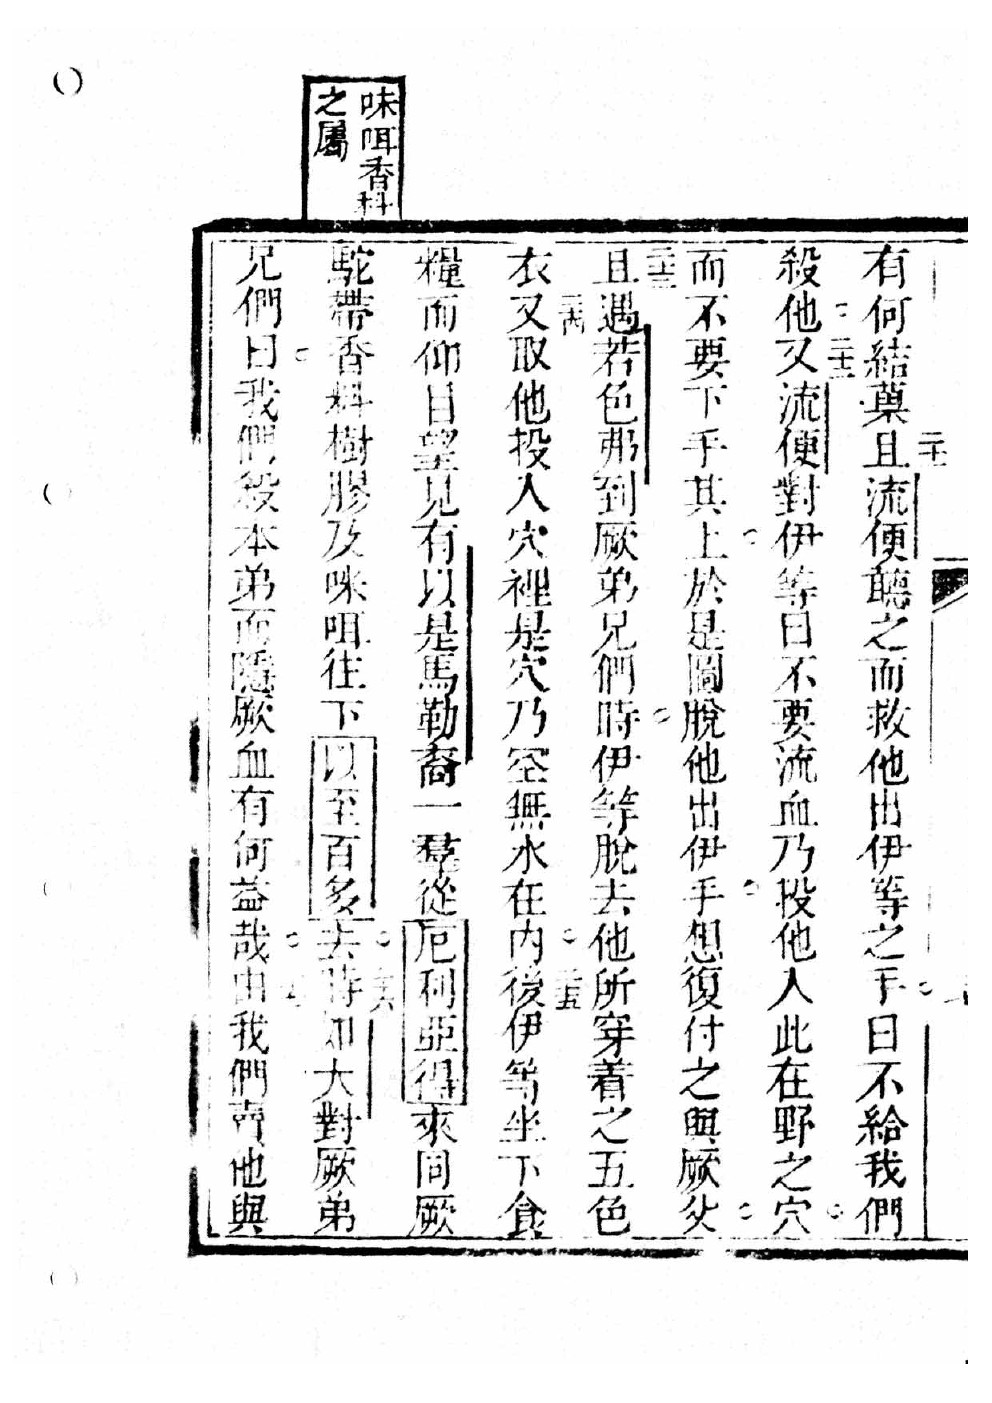 有何結菓且流便聽之而救他出伊等之手曰不給我們
二十一
殺他又流便對伊等曰不要流血乃投他入此在野之穴
二十二
而不要下手其上於是圖脫他出伊手想復付之與厥父
二十三
且遇若色弗到厥弟兄們時伊等脫去他所穿着之五色
二十四
衣又取他投入穴裡是穴乃空無水在內後伊等坐下食
二十五
糧而仰目望見有以是馬勒裔一羣從厄利亞得來同厥
二十六
駝帶香料樹膠及咪咀往下以至百多去時如大對厥弟
兄們曰我們殺本弟而隱厥血有何益哉由我們賣他與
咪咀香料
之屬